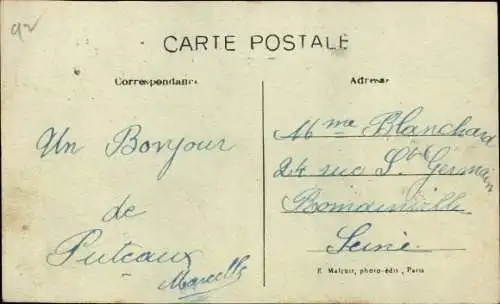 92
CARTE POSTALE
Correspondance
Adresse
Un Bonjour
de
Puteaux
Marcelle
Mme Blanchard
24 rue St Germain
Romainville
Seine
E. Malcuit, photo-édit, Paris